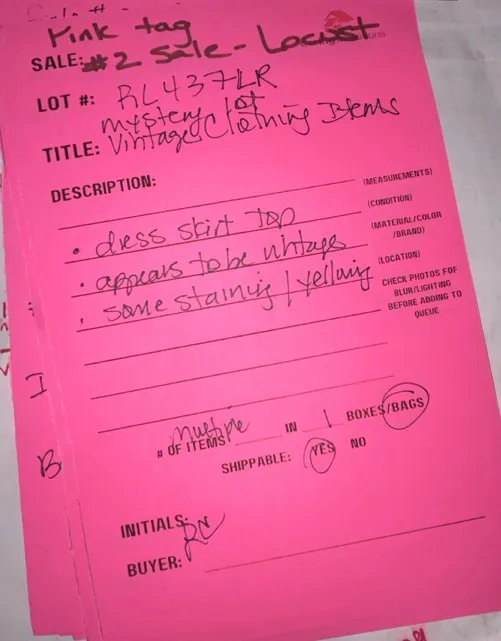 Pink tag
SALE: #2 Sale - Locust
LOT #: RL437LR
mystery lot
TITLE: Vintage Clothing Items
DESCRIPTION:
(MEASUREMENTS)
(CONDITION)
• dress skirt top
(MATERIAL/COLOR
/BRAND)
• appears to be vintage
(LOCATION)
• some staining / yellowing
CHECK PHOTOS FOR
BLUR/LIGHTING
BEFORE ADDING TO
QUEUE
# OF ITEMS multiple IN 1 BOXES/BAGS
SHIPPABLE: YES NO
INITIALS:
BUYER:
I
B